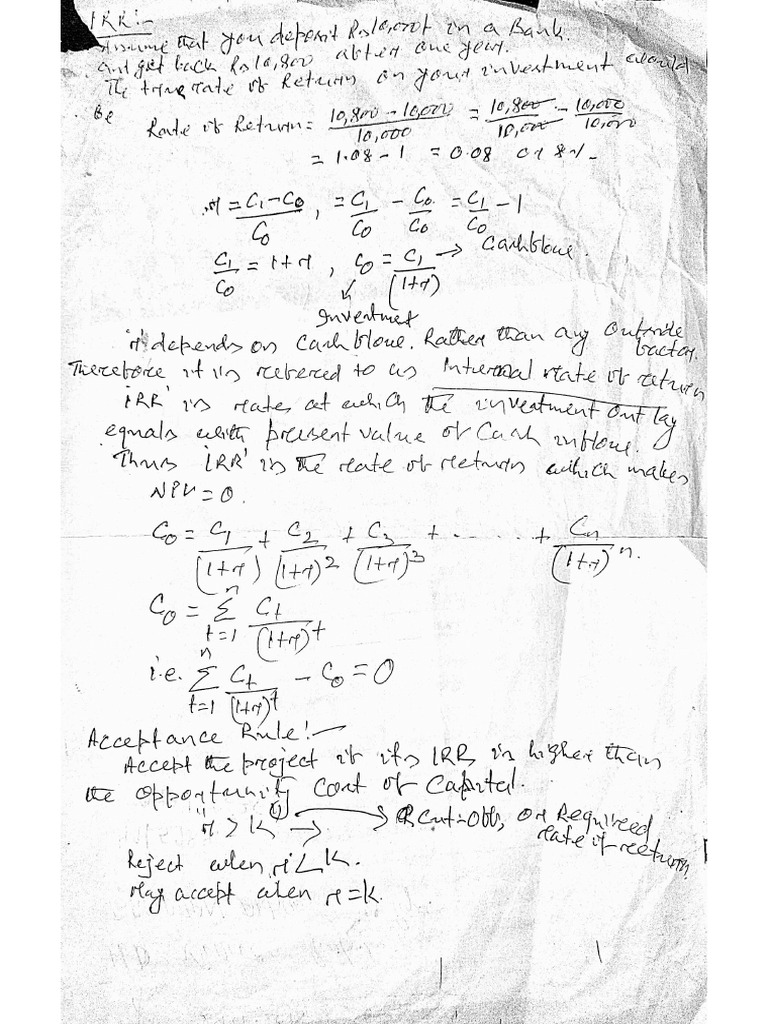 IRR:-
Assume that you deposit Rs10,000 in a Bank.
and get back Rs10,800 after one year.
The true rate of Return on your investment would
be
Rate of Return = (10,800 - 10,000)/10,000 = 10,800/10,000 - 10,000/10,000
= 1.08 - 1 = 0.08 or 8%
r = (C1 - C0)/C0, = C1/C0 - C0/C0 = C1/C0 - 1
C1/C0 = 1+r, C0 = C1/(1+r) → Cashflow.
Investment
'r' depends on Cashflow. Rather than any outside
factor.
Therefore it is refered to as Internal rate of return
'IRR' is rates at which the investment outlay
equals with present value of Cash inflow.
Thus 'IRR' is the rate of return which makes
NPV=0.
C0 = C1/(1+r) + C2/(1+r)^2 + C3/(1+r)^3 + ..... + Cn/(1+r)^n.
C0 = n Σ t=1 Ct/(1+r)^t
i.e. n Σ t=1 Ct/(1+r)^t - C0 = 0
Acceptance Rule:-
Accept the project if its IRR is higher than
the opportunity cost of capital.
r > k → Cut-off, or Required
rate of return
Reject when r < k.
May accept when r = k.